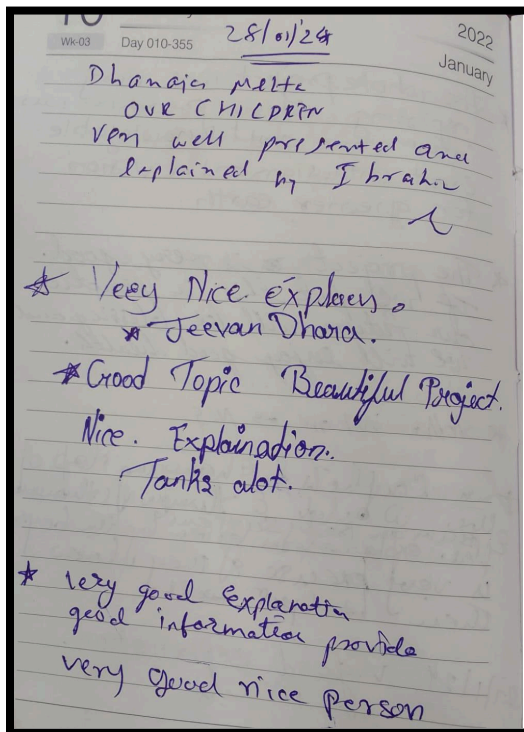 Wk-03 Day 010-355 28/01/24 2022
January
OUR CHILDREN
well presented and
explained by Ibrahim
* Veey Nice.
* Jeevan Dhara.
* Good Topic Beautiful Project.
Nice. Explaination.
Tanks alot.
* very good explanation
good information provide
very good nice person